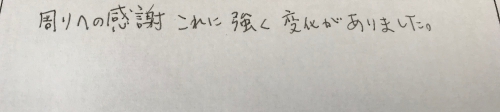 周りへの感謝 これに 強く 変化がありました。